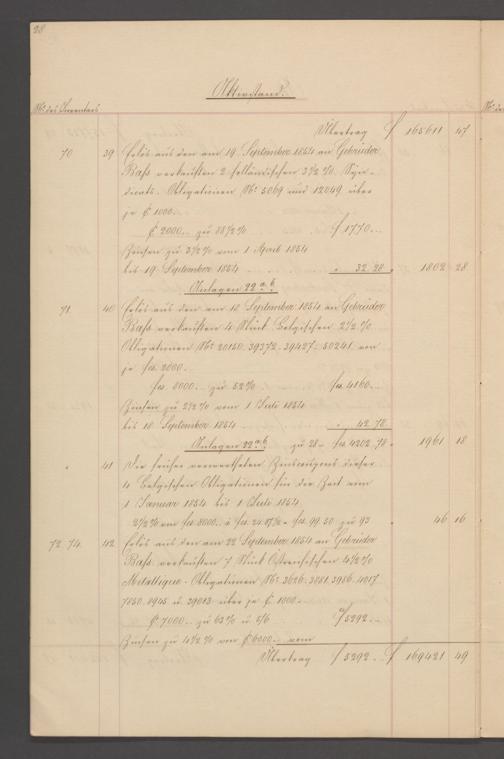 28
Aktivstand.
No des Inventars
Übertrag f 165611 47
70 39 Erlös aus den am 19 September 1854 an Gebrüder
verkauften 2 holländischen 3½%
Obligationen No 5069 und 12049 über
je f 1000.-
f 2000.- zu 88½% f 1770.-
Zinsen zu 3½% vom 1 April 1854
bis 19 September 1854 " 32.28 " 1802 28
Anlagen 22 a. b
71 40 Erlös aus den am 18 September 1854 an Gebrüder
verkauften 4 Stück Belgischen 2½%
Obligationen No 20150. 39372. 39427. 50241 von
je frs. 2000.-
frs. 8000.- zu 52% frs. 4160.-
Zinsen zu 2½% vom 1 Juli 1854
bis 18 September 1854 " 42.78
Anlagen 22 a. b zu 28 - frs. 4202.78 " 1961 18
" 41 Der früher dieser
4 Belgischen Obligationen für die Zeit vom
1 Januar 1854 bis 1 Juli 1854
2½% von frs. 8000.- zu 93 " 46 16
72. 74. 42 Erlös aus den am 22 September 1854 an Gebrüder
verkauften 7 Stück Östreichischen 4½%
Metallique-Obligationen No 3626. 3981. 3986. 4017.
7850. 8945 u. 29013 über je f 1000.-
f 7000.- zu 63% u. 5/6 f 5292.-
Zinsen zu 4½% von f 6000.- vom
Übertrag f 5292.- f 169421 49